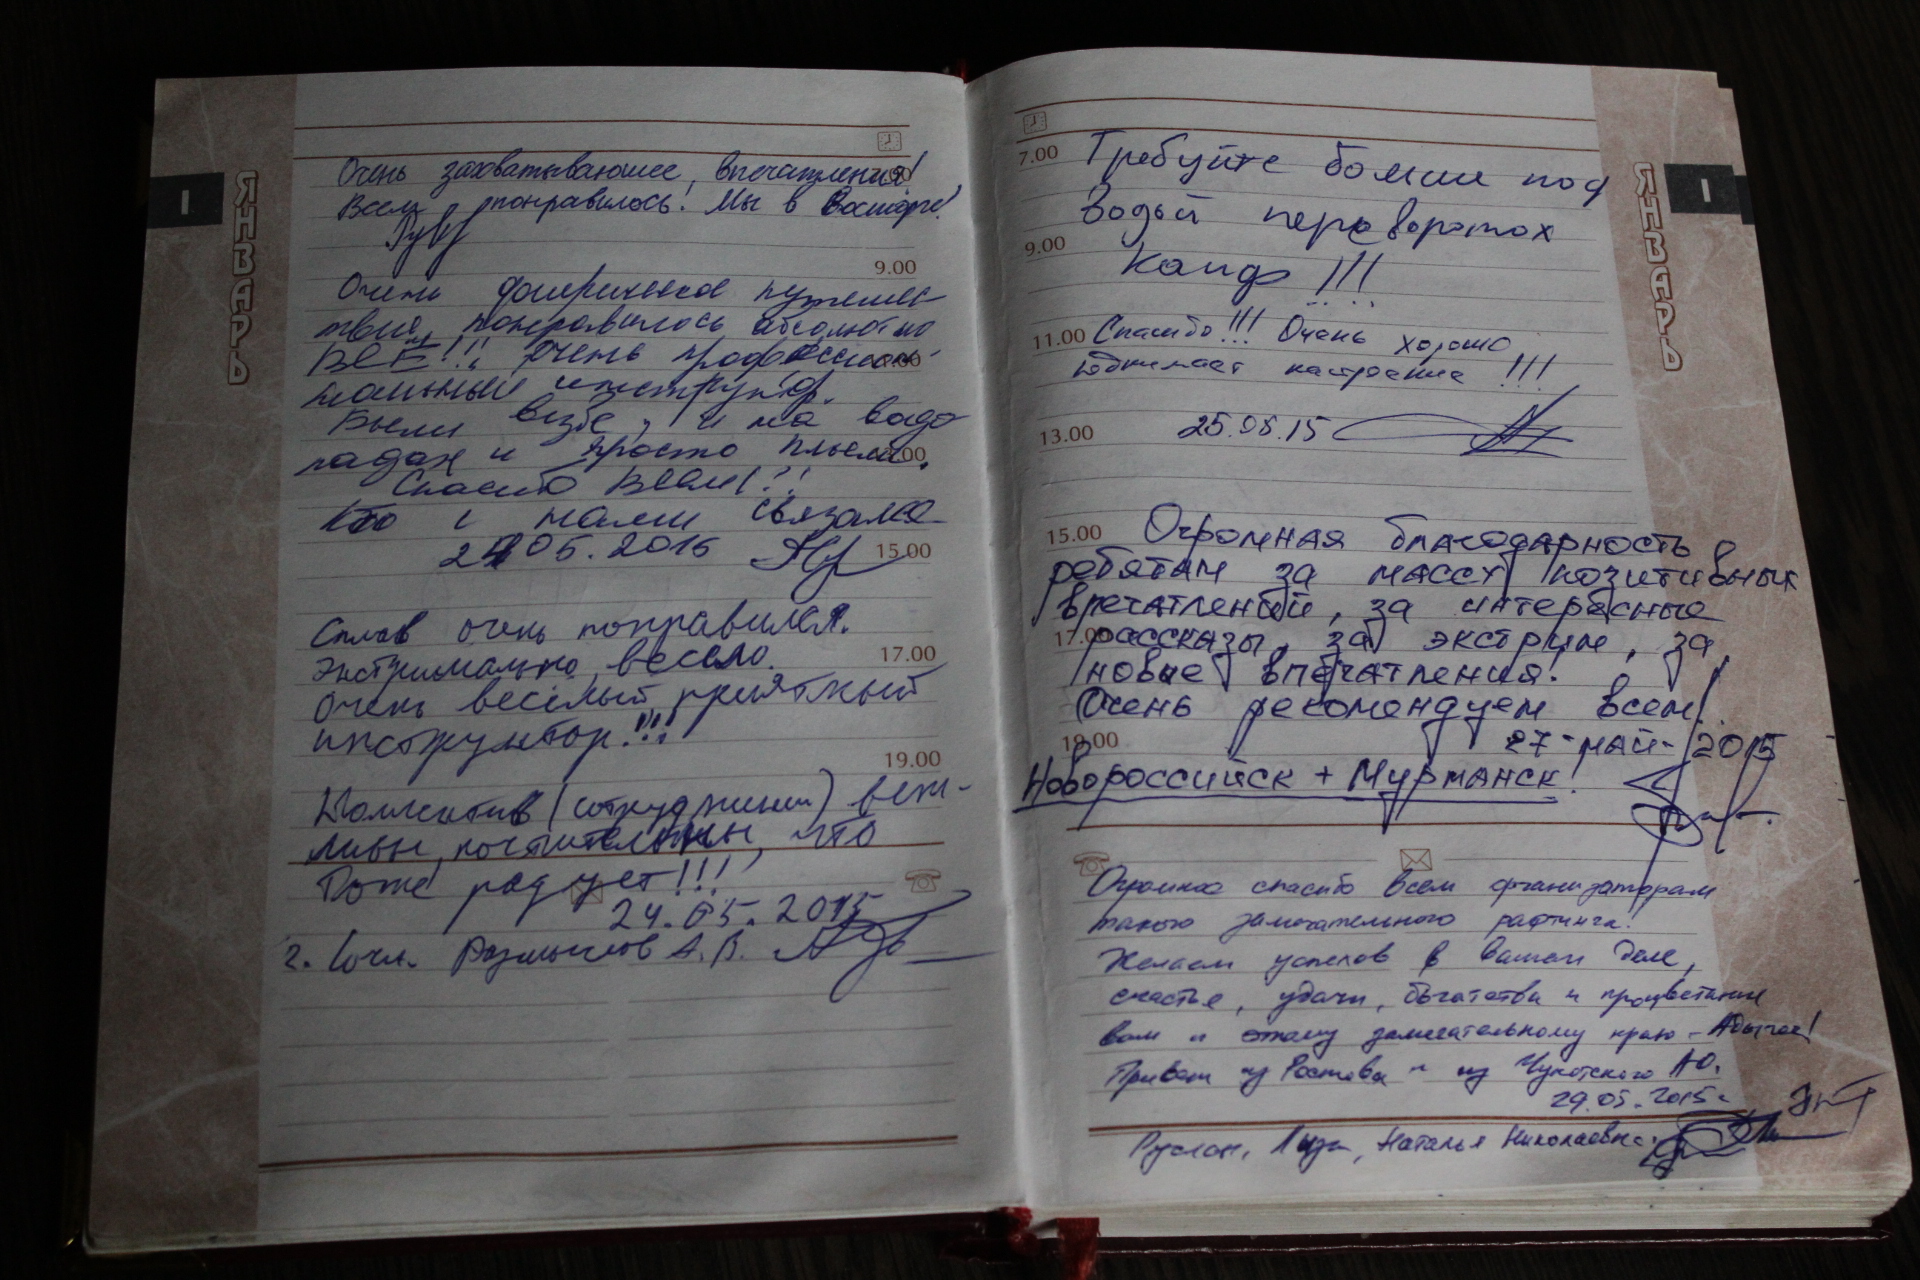 ЯНВАРЬ
I
Очень захватывающее, впечатления!
Всем понравилось! Мы в Восторге!
9.00
Очень фееричиское путешес
твие, понравилось абсолютно
ВСЁ!!! очень професссион
нальный инструктор.
Были везде, и на водо
падах и просто плыли.
Спасибо Всем!!!
Кто с нами связался
24 05. 2015
15.00
Сплав очень понравился.
Экстримально, весело.
17.00
Очень весёлый, приятный
инструктор!!!
19.00
Коллектив (сотрудники) веж-
ливы, почтительны, что
тоже радует!!!
24.05.2015
г. Сочи. Размыслов А.В.
7.00 Требуйте больше под
водой переворотах
9.00
Кайф !!!
11.00 Спасибо!!! Очень хорошо
поднимает настроение !!!
13.00 25.05.15
15.00 Огромная благодарность
ребятам за массу позитивных
впечатлений, за интересные
17.00 рассказы, за экстрим, за
новые впечатления!
Очень рекомендуем всем!
19.00 27-май-2015
Новороссийск + Мурманск!
Огромное спасибо всем организаторам
такого замечательного рафтинга!
Желаем успехов в вашем деле,
счастья, удачи, богатства и процветания
вам и этому замечательному краю - Адыгее!
Привет из Ростова и из Чукотского АО.
29.05.2015г.
Руслан, Лиза, Наталья Николаевна.
I
ЯНВАРЬ